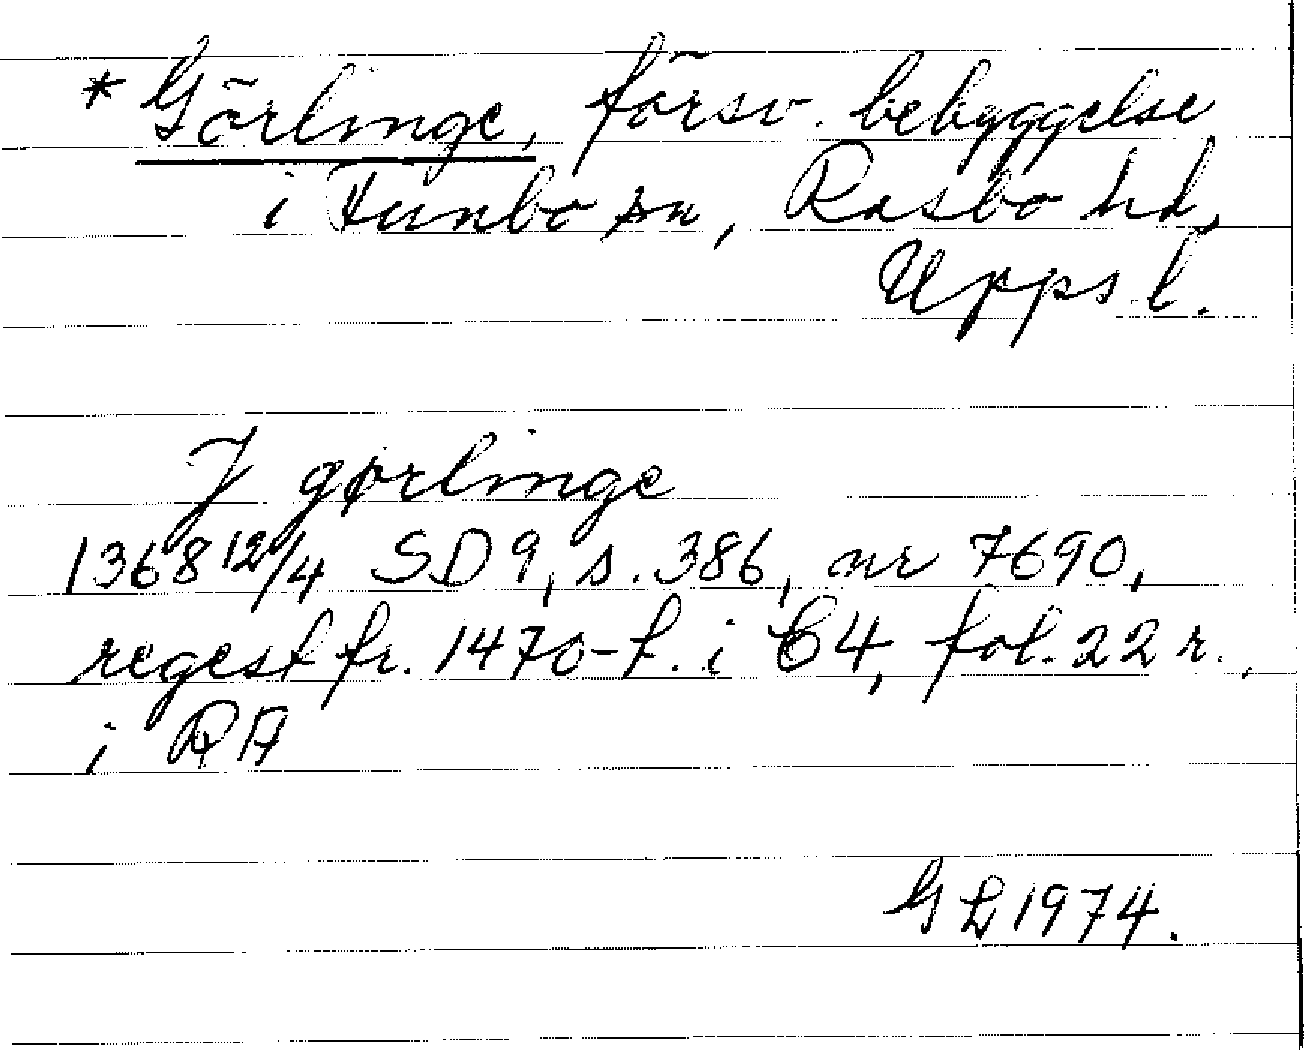 * Görlinge, försv. bebyggelse
i Funbo sn, Rasbo hd,
Upps. l.
J gørlinge
1368 12/4 SD 9, s. 386, nr 7690,
regest fr. 1470-t. i C4, fol. 22 r.,
i RA
GL 1974.